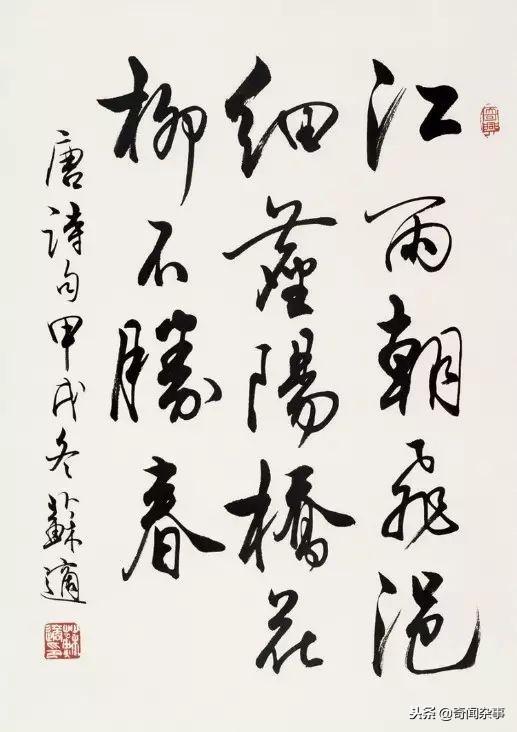 江雨朝飛浥
細塵陽橋花
柳不勝春
唐詩句甲戌冬蘇適
头条@奇闻杂事